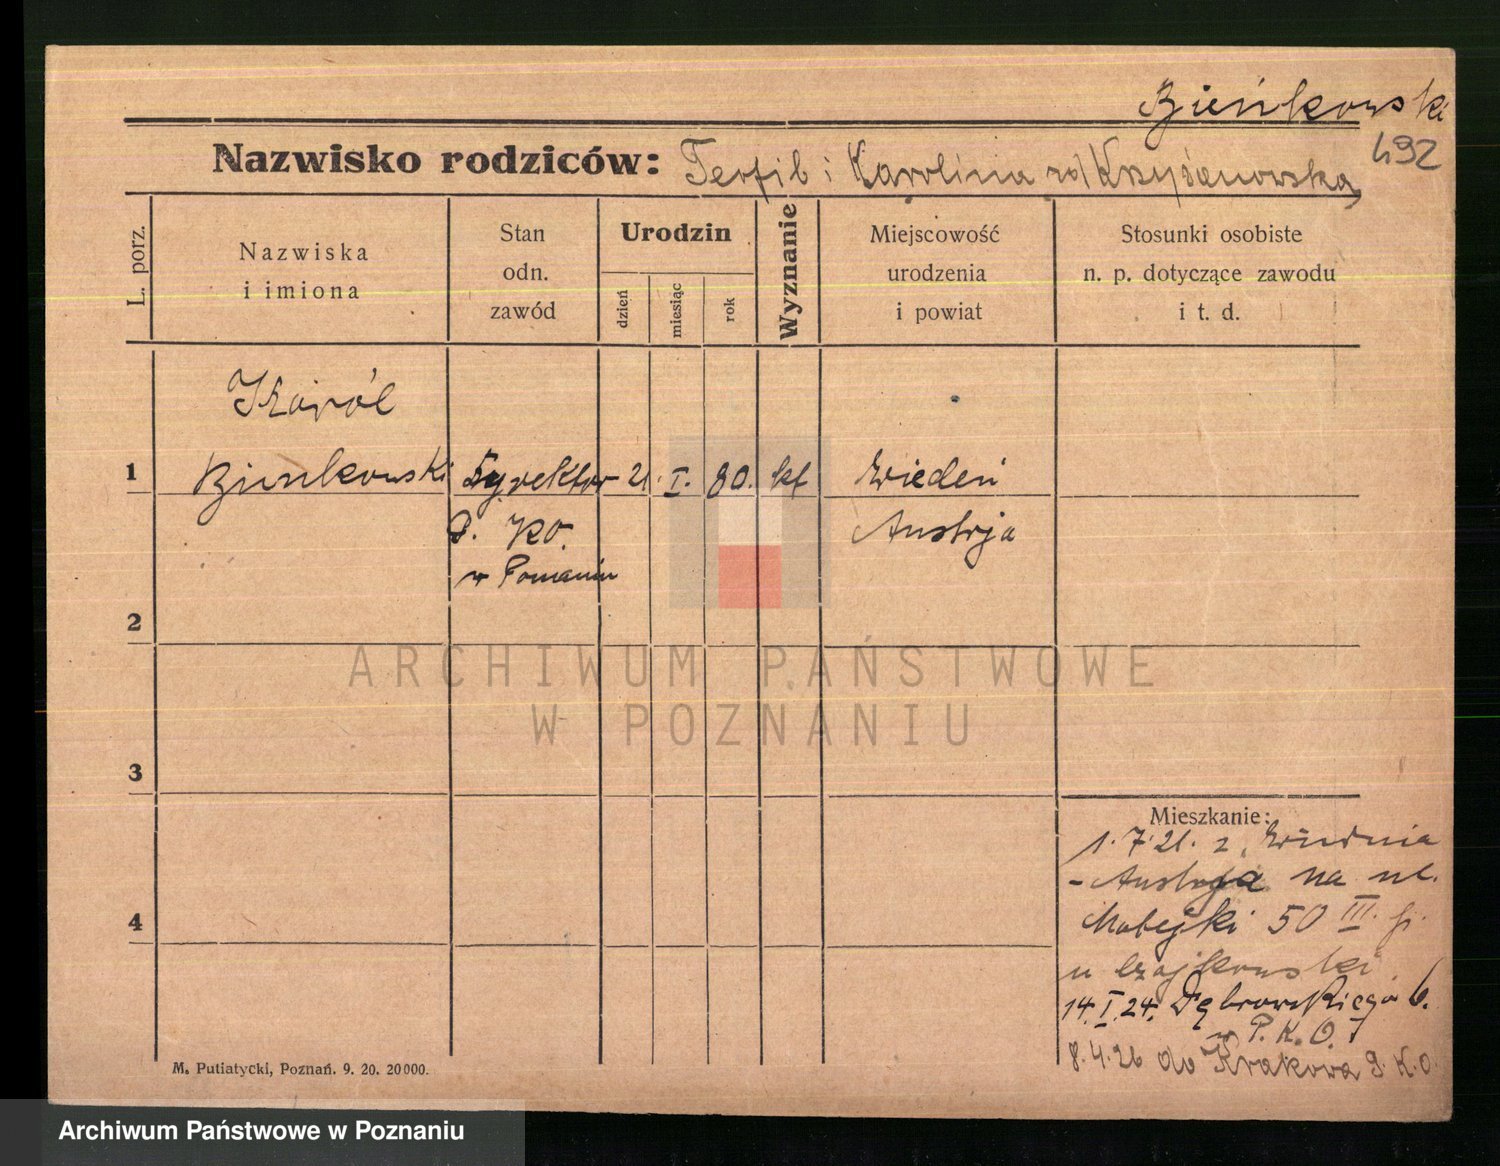 Bieńkowski
492
Nazwisko rodziców: Teofil i Karolina Krzyżanowska
L. porz.
Nazwiska
i imiona
Stan
odn.
zawód
Urodzin
dzień
miesiąc
rok
Wyznanie
Miejscowość
urodzenia
i powiat
Stosunki osobiste
n. p. dotyczące zawodu
i t. d.
Karól
1 Bieńkowski Dyrektor 21. I. 80. kt Wiedeń
P. KO. Austrja
w Poznaniu
2
3
4
Mieszkanie:
1.7.21. z Wiednia
- Austrja na ul.
Matejki 50 III. p.
u Czajkowski
14.I.24. Dąbrowskiego 6.
w P.K.O.
8.4.26 do Krakowa P.K.O.
M. Putiatycki, Poznań. 9. 20. 20000.
ARCHIWUM PAŃSTWOWE
W POZNANIU
Archiwum Państwowe w Poznaniu